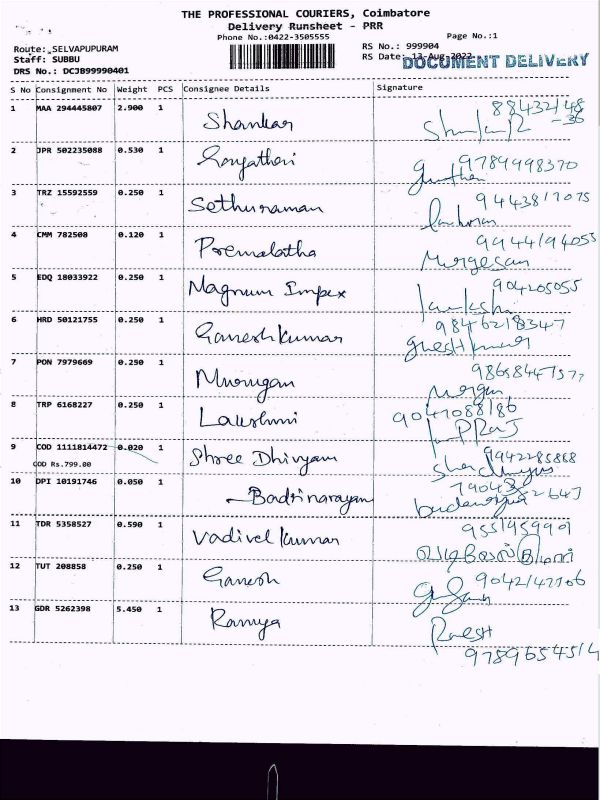 THE PROFESSIONAL COURIERS, Coimbatore
Delivery Runsheet - PRR
Phone No.:0422-3505555
Page No.:1
Route: SELVAPUPURAM
RS No.: 999904
Staff: SUBBU
RS Date: 13-Aug-2022
DOCUMENT DELIVERY
DRS No.: DCJB99990401
S No Consignment No Weight PCS Consignee Details Signature
1 MAA 294445807 2.900 1 Shankar
2 JPR 502235088 0.530 1 9789998370
3 TRZ 15592559 0.250 1 Sethuraman
4 CMM 782508 0.120 1 Premalatha 9944194053
Murgesan
5 EDQ 18033922 0.250 1 Magnum Impex 904205055
6 HRD 50121755 0.250 1 Ganeshkumar
7 PON 7979669 0.250 1 Murugan
8 TRP 6168227 0.250 1 Lakshmi
9 COD 1111814472 0.020 1 Shree Dhivyam 9942285868
COD Rs.799.00
10 DPI 10191746 0.050 1 Badrinarayan
11 TDR 5358527 0.590 1 Vadivel kumar 9551959901
12 TUT 208858 0.250 1 Ganesh
13 GDR 5262398 5.450 1 Ramya
9789654514